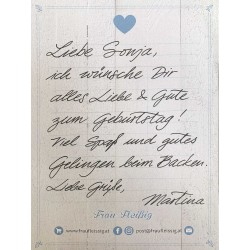 Liebe Sonja,
ich wünsche Dir
alles Liebe & Gute
zum Geburtstag!
Viel Spaß und gutes
Gelingen beim Backen.
Liebe Grüße,
Martina
Frau Fleißig
www.fraufleissig.at post@fraufleissig.at